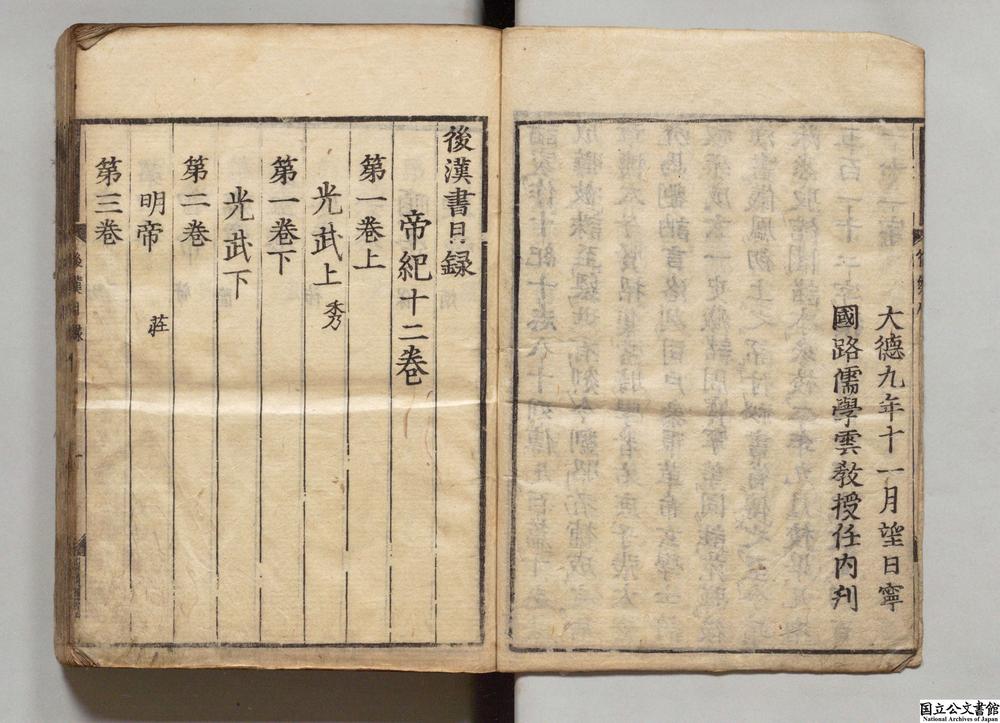 大德九年十一月望日寧
國路儒學雲教授任內刋
後漢書目録
帝紀十二卷
第一卷上
光武上 秀
第一卷下
光武下
第二卷
明帝 莊
第三卷
国立公文書館
National Archives of Japan